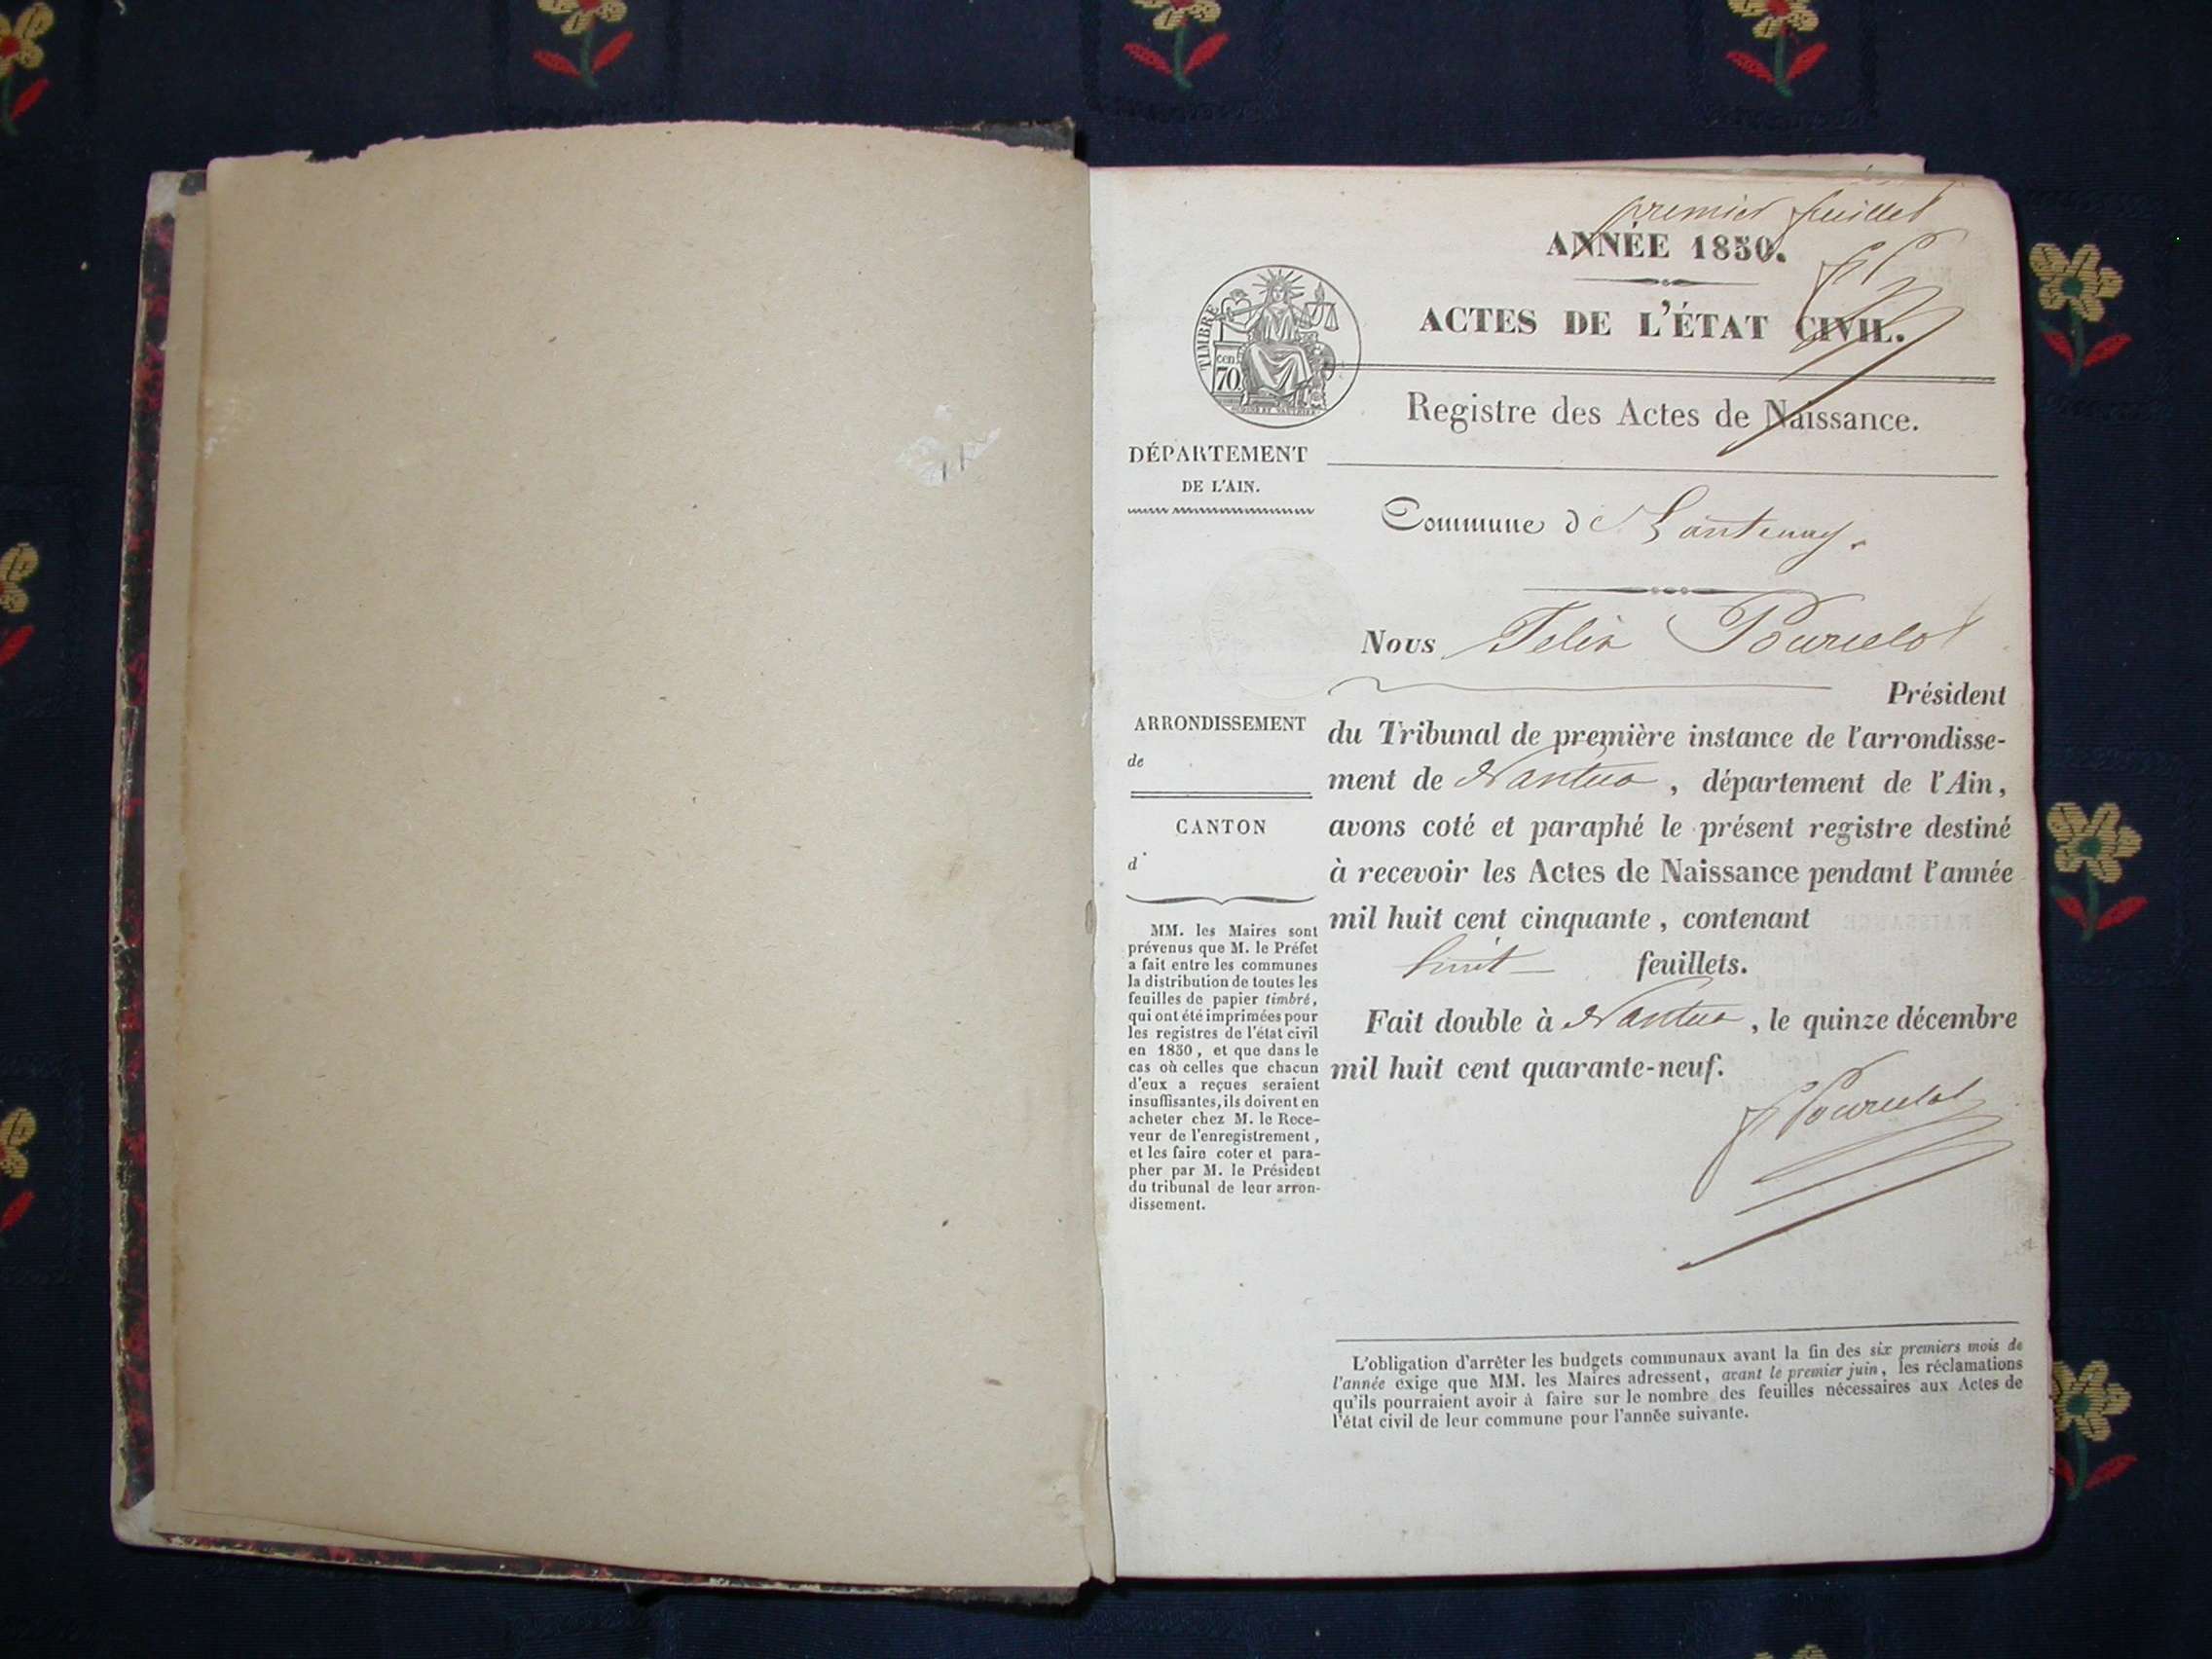 premier feuillet
ANNÉE 1850.
ACTES DE L'ÉTAT CIVIL.
TIMBRE
cen
70
Registre des Actes de Naissance.
DÉPARTEMENT
DE L'AIN.
Commune de Lantenay.
Nous Felix Pourcelot
Président
du Tribunal de première instance de l'arrondisse-
ment de Nantua, département de l'Ain,
avons coté et paraphé le présent registre destiné
à recevoir les Actes de Naissance pendant l'année
mil huit cent cinquante, contenant
huit feuillets.
Fait double à Nantua, le quinze décembre
mil huit cent quarante-neuf.
F Pourcelot
ARRONDISSEMENT
de
CANTON
d'
MM. les Maires sont
prévenus que M. le Préfet
a fait entre les communes
la distribution de toutes les
feuilles de papier timbré,
qui ont été imprimées pour
les registres de l'état civil
en 1850, et que dans le
cas où celles que chacun
d'eux a reçues seraient
insuffisantes, ils doivent en
acheter chez M. le Rece-
veur de l'enregistrement,
et les faire coter et para-
pher par M. le Président
du tribunal de leur arron-
dissement.
L'obligation d'arrêter les budgets communaux avant la fin des six premiers mois de
l'année exige que MM. les Maires adressent, avant le premier juin, les réclamations
qu'ils pourraient avoir à faire sur le nombre des feuilles nécessaires aux Actes de
l'état civil de leur commune pour l'année suivante.